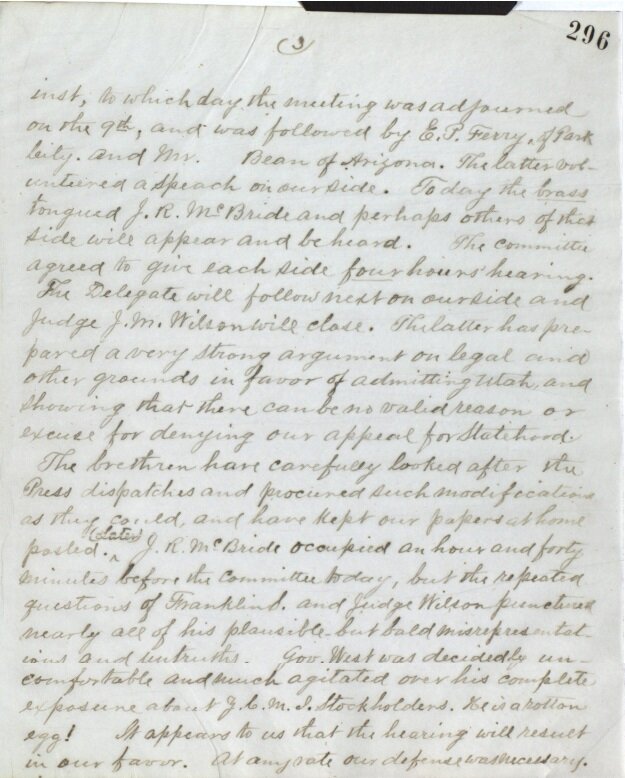 296
(3)
inst, to which day the meeting was adjourned
on the 9th, and was followed by E. P. Ferry, of Park
City. and Mr. Bean of Arizona. The latter vol-
unteered a speach on our side. Today the brass
tongued J. R. McBride and perhaps others of that
side will appear and be heard. The committee
agreed to give each side four hours' hearing.
The Delegate will follow next on our side and
Judge J. M. Wilson will close. The latter has pre-
pared a very strong argument on legal and
other grounds in favor of admitting Utah, and
showing that there can be no valid reason or
excuse for denying our appeal for Statehood.
The brethren have carefully looked after the
Press dispatches and procured such modifications
as they could, and have kept our papers at home
posted. (Later) J. R. McBride occupied an hour and forty
minutes before the Committee today, but the repeated
questions of Franklin S. and Judge Wilson punctured
nearly all of his plausible but bald misrepresentat-
ions and untruths. Gov. West was decidedly un-
comfortable and much agitated over his complete
exposure about Z. C. M. I. Stockholders. He is a rotton
egg! It appears to us that the hearing will result
in our favor. At any rate our defense was necessary.